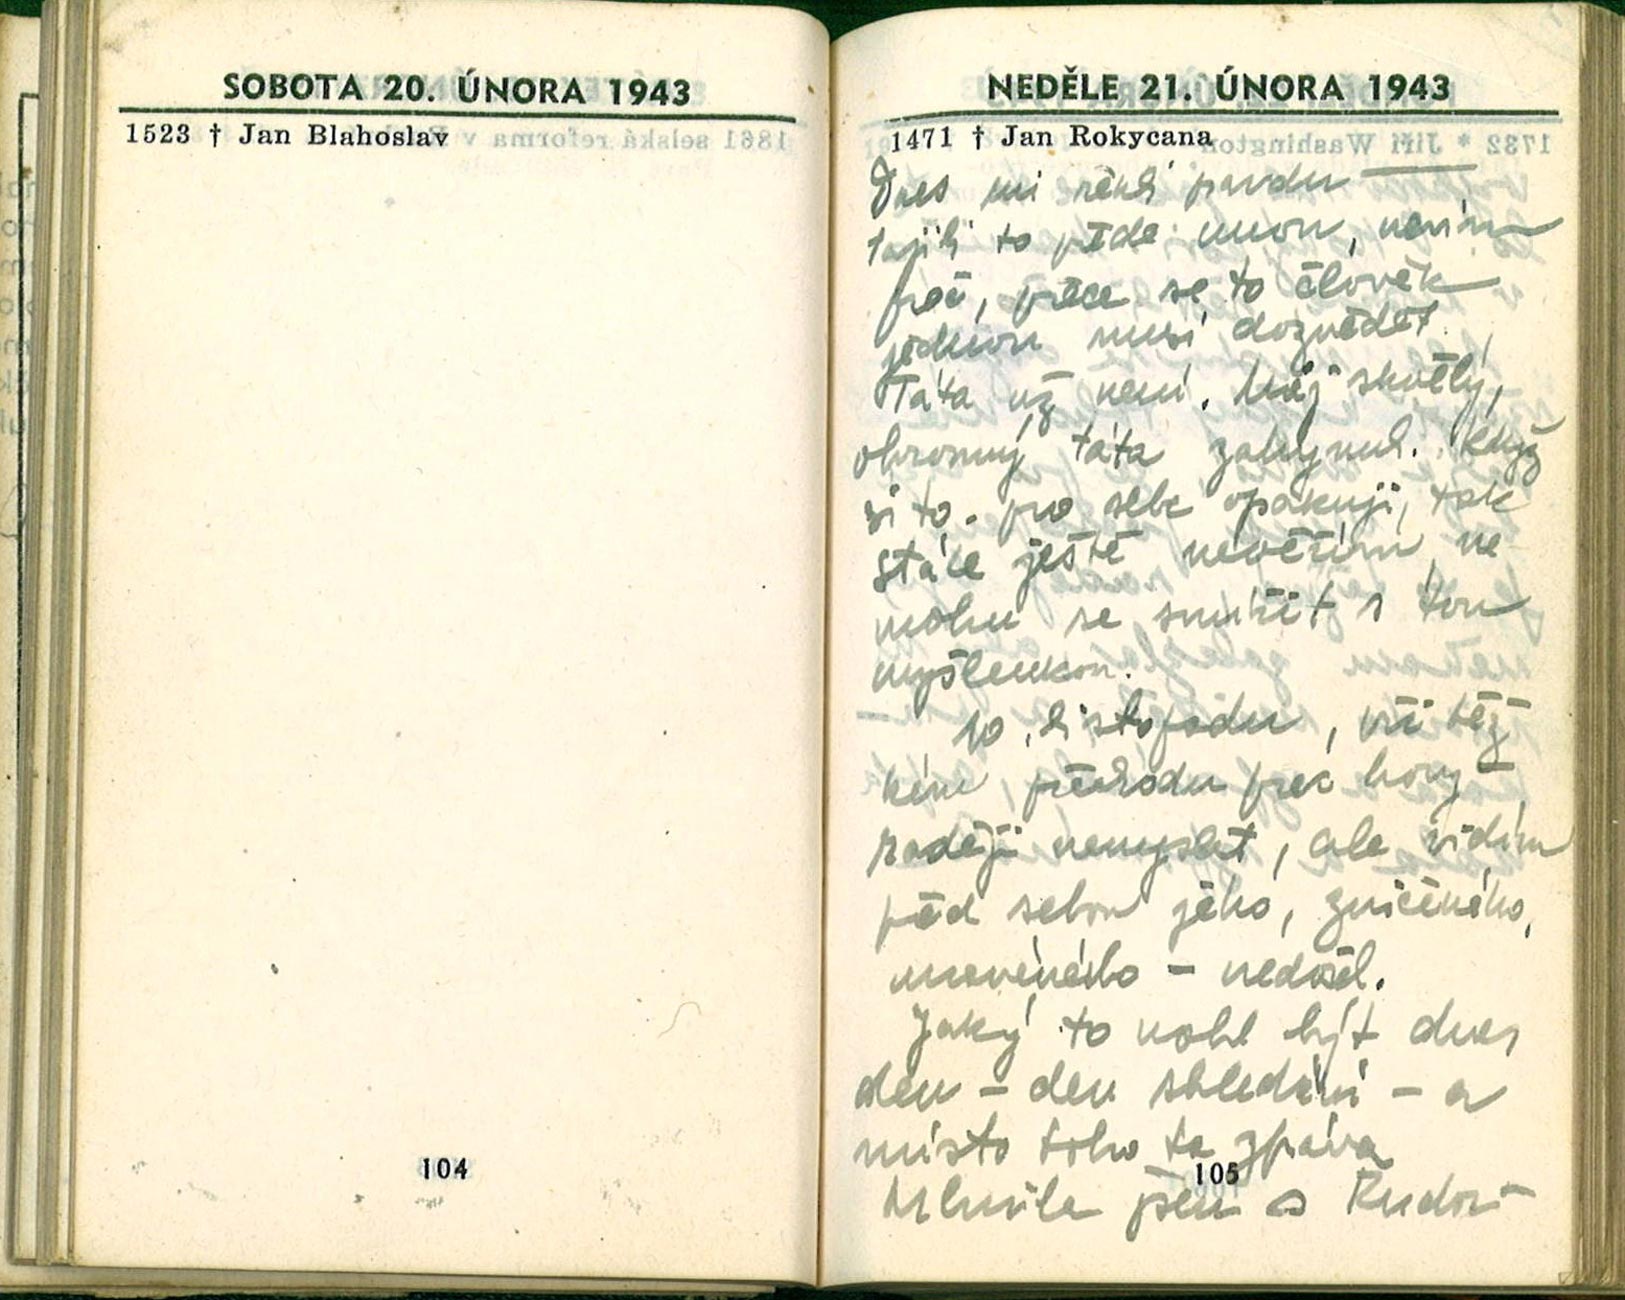 SOBOTA 20. ÚNORA 1943
1523 † Jan Blahoslav
104
NEDĚLE 21. ÚNORA 1943
1471 † Jan Rokycana
Dnes mi řekli pravdu —
tajili to přede mnou, nevím
proč, přece se to člověk
jednou musí dozvědět.
Táta už není. Můj skvělý,
ohromný táta zahynul. Když
si to pro sebe opakuji, tak
stále ještě nevěřím, ne
mohu se smířit s tou
myšlenkou.
10. listopadu, při těž-
kém přechodu přes hory –
raději nemyslet, ale vidím
před sebou jeho, zničeného,
unaveného – nedošel.
Jaký to mohl být dnes
den – den shledání – a
místo toho ta zpráva
105
Mluvila jsem s Rudou –